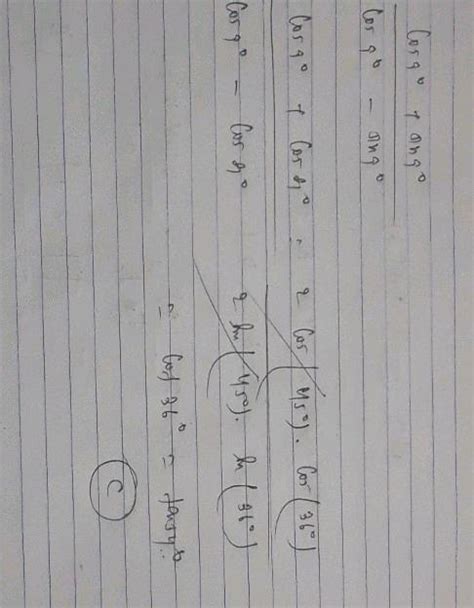 cos 9° + sin 9°
cos 9° - sin 9°
cos 9° + cos 81° = 2 cos (45°). cos (36°)
cos 9° - cos 81° 2 sin (45°). sin (36°)
= cot 36° = tan 54°
C